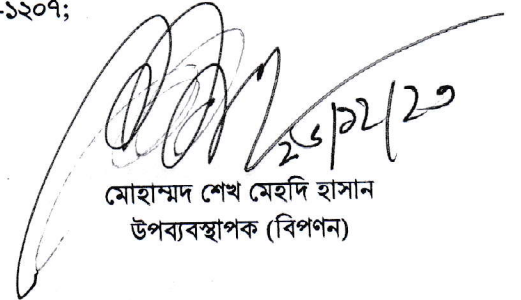 -১২০৭;
২৬/১২/২৩
মোহাম্মদ শেখ মেহদি হাসান
উপব্যবস্থাপক (বিপণন)